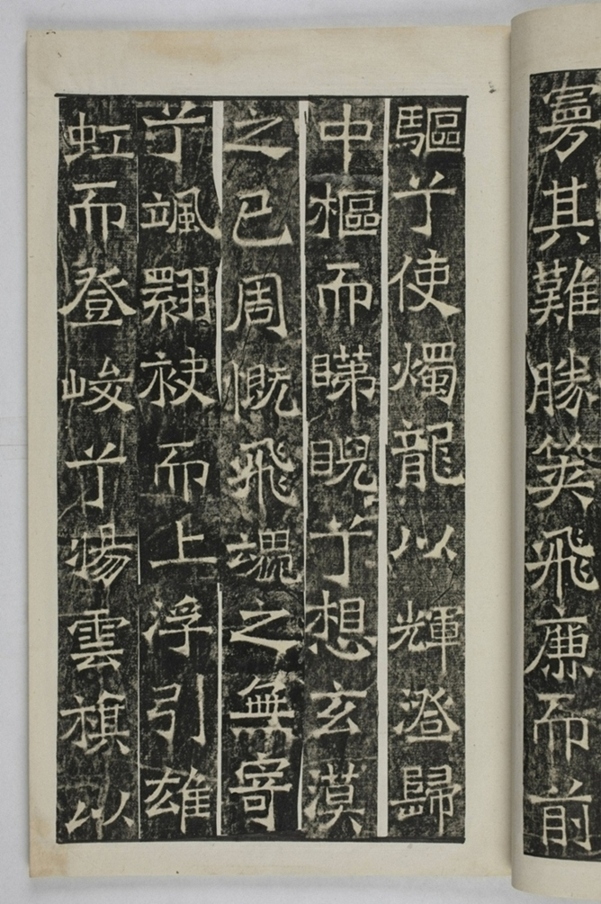 其難勝筴飛廉而前
驅兮使燭龍以輝澄歸
中樞而睇睨兮想玄漠
之已周慨飛魂之無寄
兮颯翾袂而上浮引雄
虹而登峻兮揚雲旗以